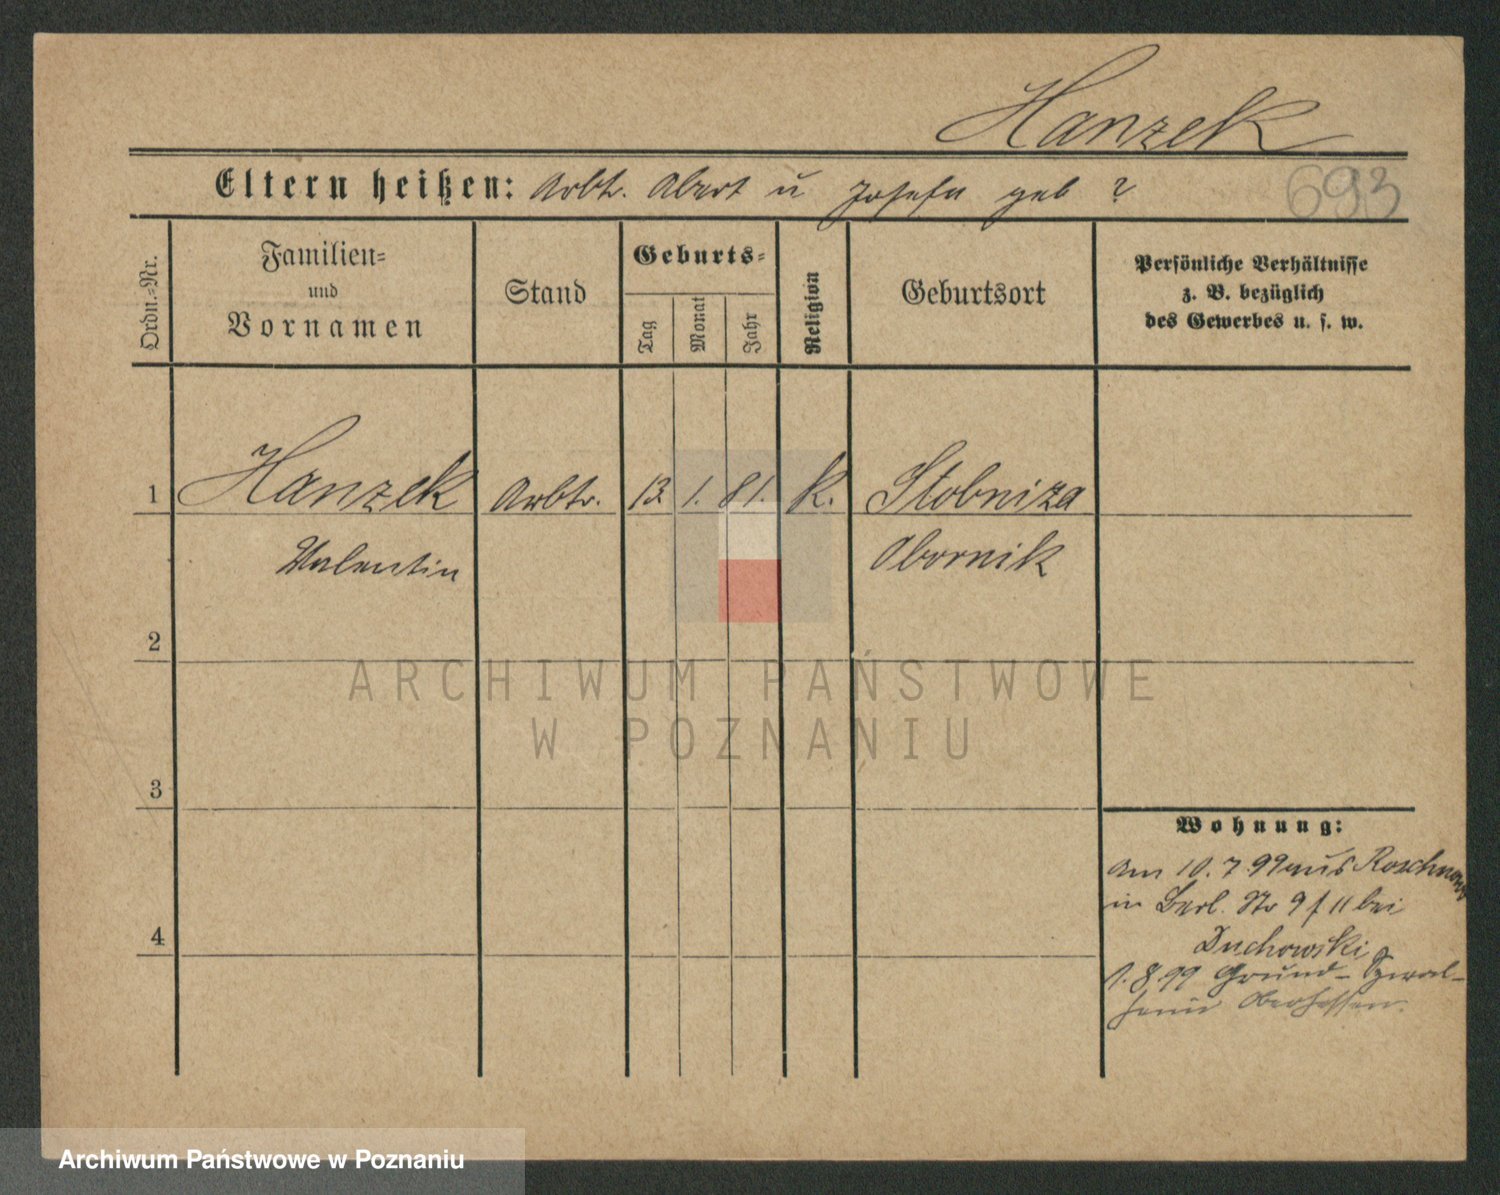 Hanzek
Eltern heißen: Arbtr. Albert u Josefa geb ?
693
Ordn.=Nr.
Familien=
und
Vornamen
Stand
Geburts=
Tag
Monat
Jahr
Religion
Geburtsort
Persönliche Verhältnisse
z. B. bezüglich
des Gewerbes u. s. w.
1 Hanzek Arbtr. 13. 1. 81. K. Stobniza
Valentin Obornik
2
ARCHIWUM PAŃSTWOWE
W POZNANIU
3
Wohnung:
Am 10. 7. 99 aus
in Berl. Str 9 f II bei
Duchowski
4
1. 8. 99
Oberhessen.
Archiwum Państwowe w Poznaniu